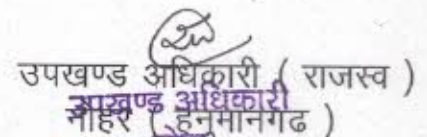 उपखण्ड अधिकारी ( राजस्व )
उपखण्ड अधिकारी
नोहर ( हनुमानगढ )